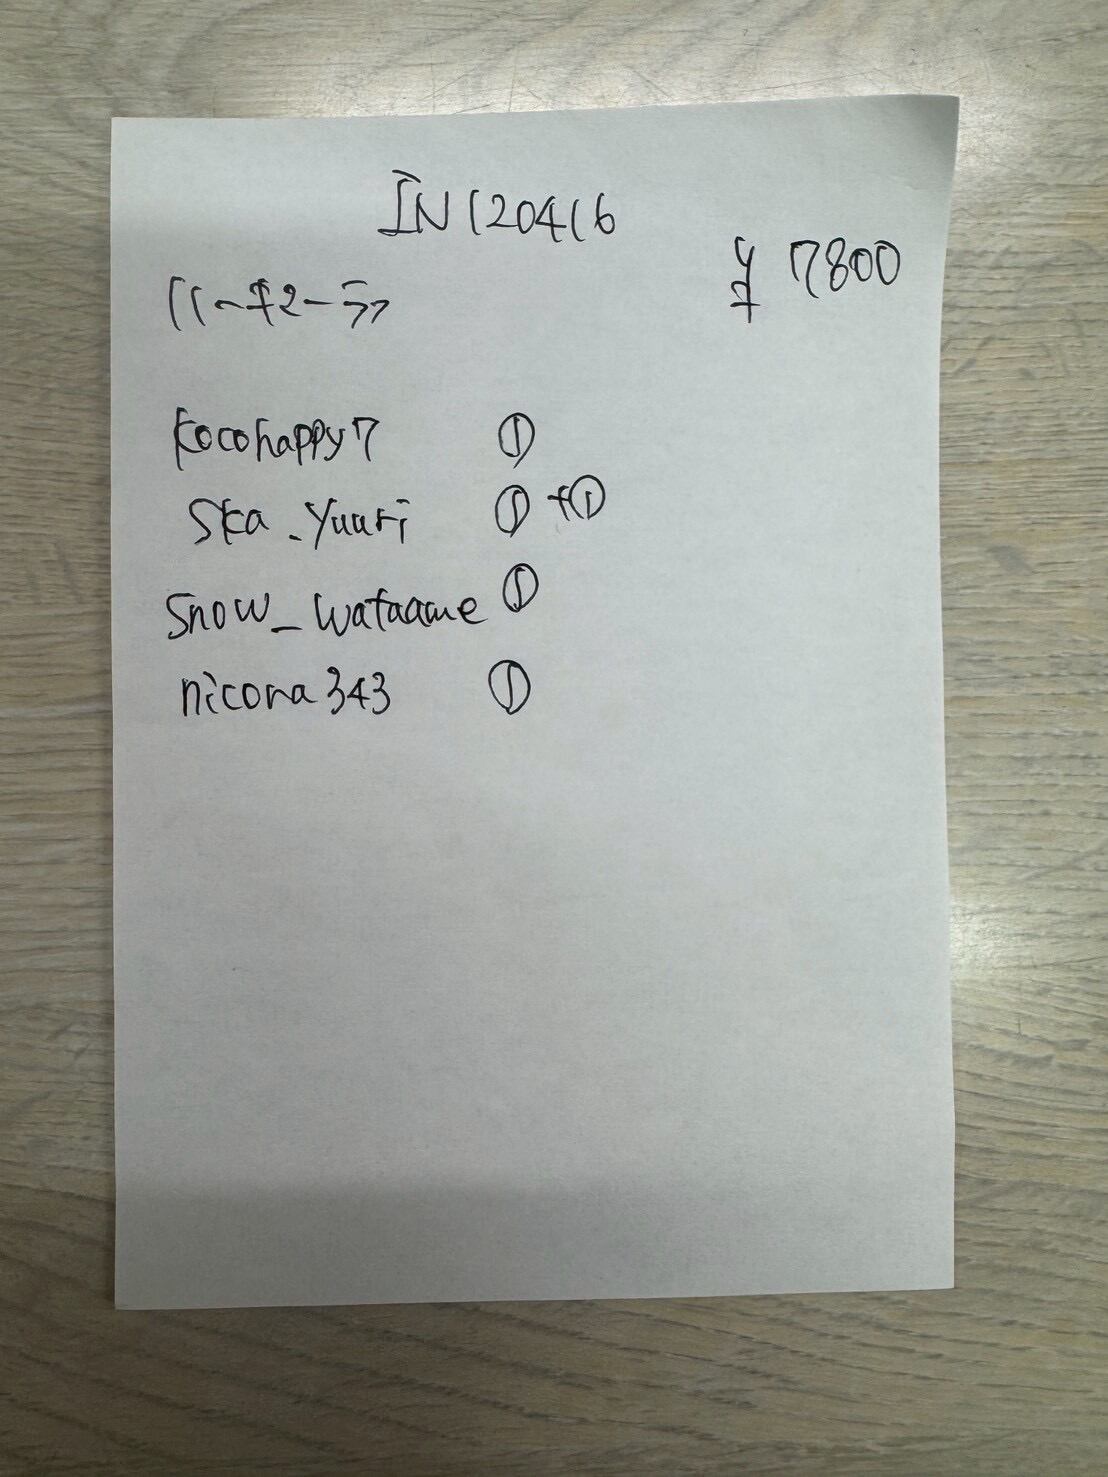 IN120416
¥7800
kocohappy7 ①
ska_yuuri ① +①
snow_wataame ①
nicora343 ①